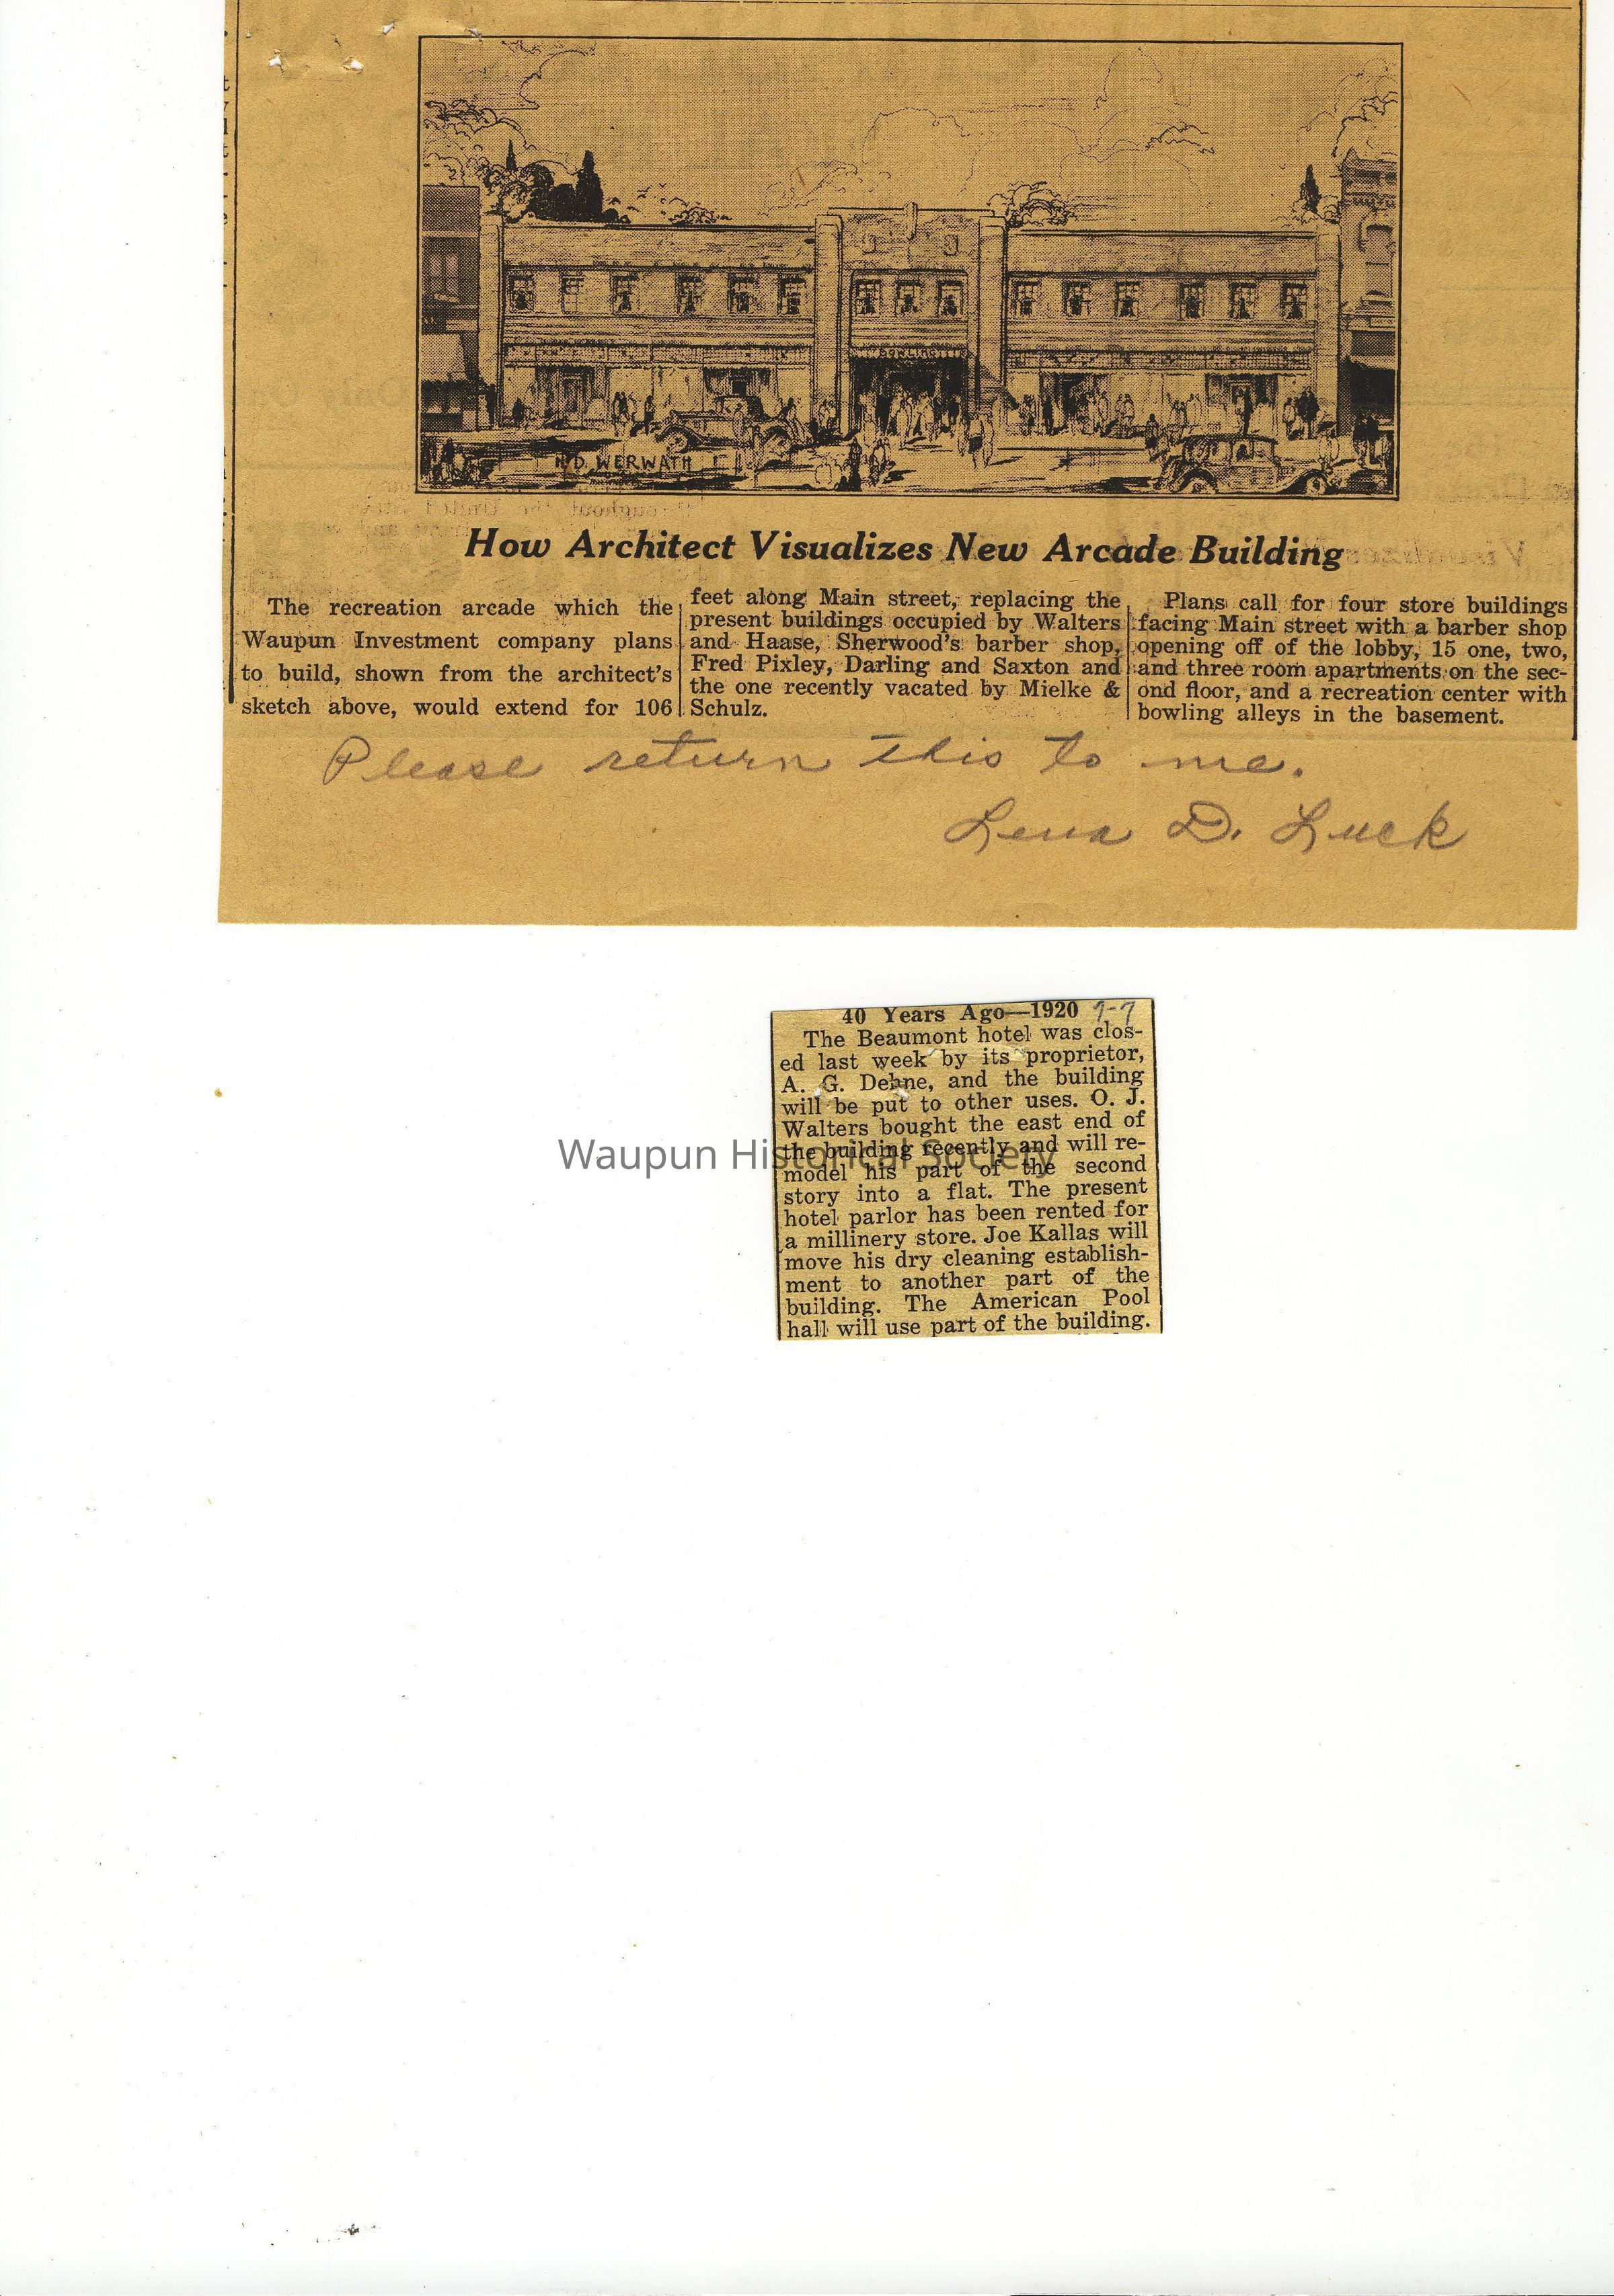 BOWLING
H.D. WERWATH
How Architect Visualizes New Arcade Building
The recreation arcade which the
Waupun Investment company plans
to build, shown from the architect's
sketch above, would extend for 106
feet along Main street, replacing the
present buildings occupied by Walters
and Haase, Sherwood's barber shop,
Fred Pixley, Darling and Saxton and
the one recently vacated by Mielke &
Schulz.
Plans call for four store buildings
facing Main street with a barber shop
opening off of the lobby, 15 one, two,
and three room apartments on the sec-
ond floor, and a recreation center with
bowling alleys in the basement.
Please return this to me.
Lena D. Luck
40 Years Ago—1920
The Beaumont hotel was clos-
ed last week by its proprietor,
A. G. Dehne, and the building
will be put to other uses. O. J.
Walters bought the east end of
the building recently and will re-
model his part of the second
story into a flat. The present
hotel parlor has been rented for
a millinery store. Joe Kallas will
move his dry cleaning establish-
ment to another part of the
building. The American Pool
hall will use part of the building.
Waupun Historical Society